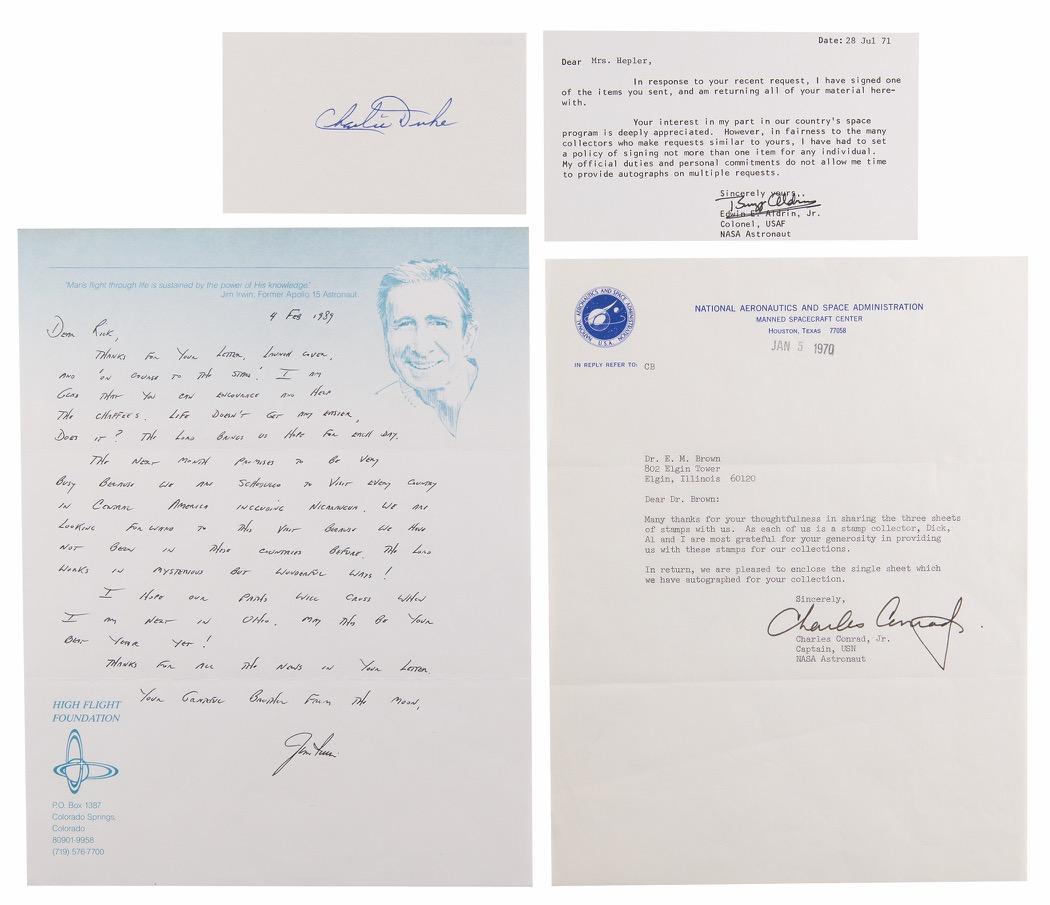 Charlie Duke
Date: 28 Jul 71
Dear Mrs. Hepler,
In response to your recent request, I have signed one
of the items you sent, and am returning all of your material here-
with.
Your interest in my part in our country's space
program is deeply appreciated. However, in fairness to the many
collectors who make requests similar to yours, I have had to set
a policy of signing not more than one item for any individual.
My official duties and personal commitments do not allow me time
to provide autographs on multiple requests.
Sincerely yours,
Buzz Aldrin
Edwin E. Aldrin, Jr.
Colonel, USAF
NASA Astronaut
"Man's flight through life is sustained by the power of His knowledge."
Jim Irwin, Former Apollo 15 Astronaut
4 Feb 1989
Dear Rick,
THANKS FOR YOUR LETTER, LAUNCH COVER,
AND 'ON COURSE TO THE STARS'. I AM
GLAD THAT YOU CAN ENCOURAGE AND HELP
THE CHAFFEES. LIFE DOESN'T GET ANY EASIER,
DOES IT? THE LORD BRINGS US HOPE FOR EACH DAY.
THE NEXT MONTH PROMISES TO BE VERY
BUSY BECAUSE WE ARE SCHEDULED TO VISIT EVERY COUNTRY
IN CENTRAL AMERICA INCLUDING NICARAGUA. WE ARE
LOOKING FORWARD TO THIS VISIT BECAUSE WE HAVE
NOT BEEN IN THESE COUNTRIES BEFORE. THE LORD
WORKS IN MYSTERIOUS BUT WONDERFUL WAYS!
I HOPE OUR PATHS WILL CROSS WHEN
I AM NEXT IN OHIO. MAY THIS BE YOUR
BEST YEAR YET!
THANKS FOR ALL THE NEWS IN YOUR LETTER.
YOUR GRATEFUL BROTHER FROM THE MOON,
Jim Irwin
HIGH FLIGHT
FOUNDATION
P.O. Box 1387
Colorado Springs,
Colorado
80901-9958
(719) 576-7700
NATIONAL AERONAUTICS AND SPACE ADMINISTRATION
U.S.A.
NATIONAL AERONAUTICS AND SPACE ADMINISTRATION
MANNED SPACECRAFT CENTER
HOUSTON, TEXAS 77058
JAN 5 1970
IN REPLY REFER TO: CB
Dr. E. M. Brown
802 Elgin Tower
Elgin, Illinois 60120
Dear Dr. Brown:
Many thanks for your thoughtfulness in sharing the three sheets
of stamps with us. As each of us is a stamp collector, Dick,
Al and I are most grateful for your generosity in providing
us with these stamps for our collections.
In return, we are pleased to enclose the single sheet which
we have autographed for your collection.
Sincerely,
Charles Conrad Jr.
Charles Conrad, Jr.
Captain, USN
NASA Astronaut